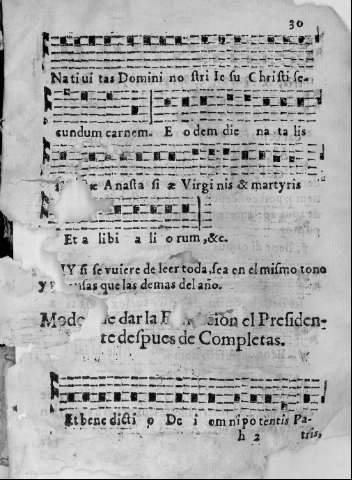 30
Natiui tas Domini no stri Ie su Christi se-
cundum carnem. E o dem die na ta lis
æ Anasta si æ Virgi nis & martyris
Et a libi a li o rum, &c.
Y si se vuiere de leer toda, sea en el mismo tono
y usas que las demas del año.
Modo de dar la cion el Presiden-
te despues de Completas.
Et bene dicti o De i omnipotentis Pa-
h 2 tris,